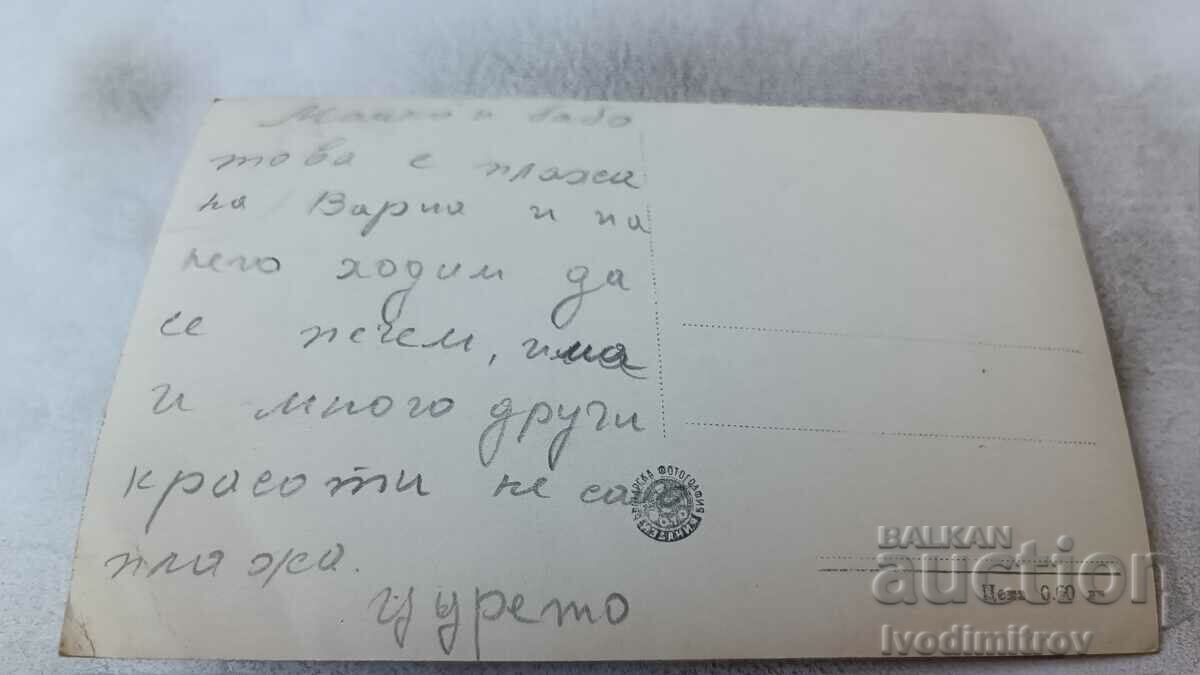 Майко и бабо
това е плажа
на Варна и на
него ходим да
се печем, има
и много други
красоти не само
плажа.
Цурето
БЪЛГАРСКА ФОТОГРАФИЯ
ИЗДАНИЕ
Цена 0.60 лв
BALKAN
auction
Ivodimitrov